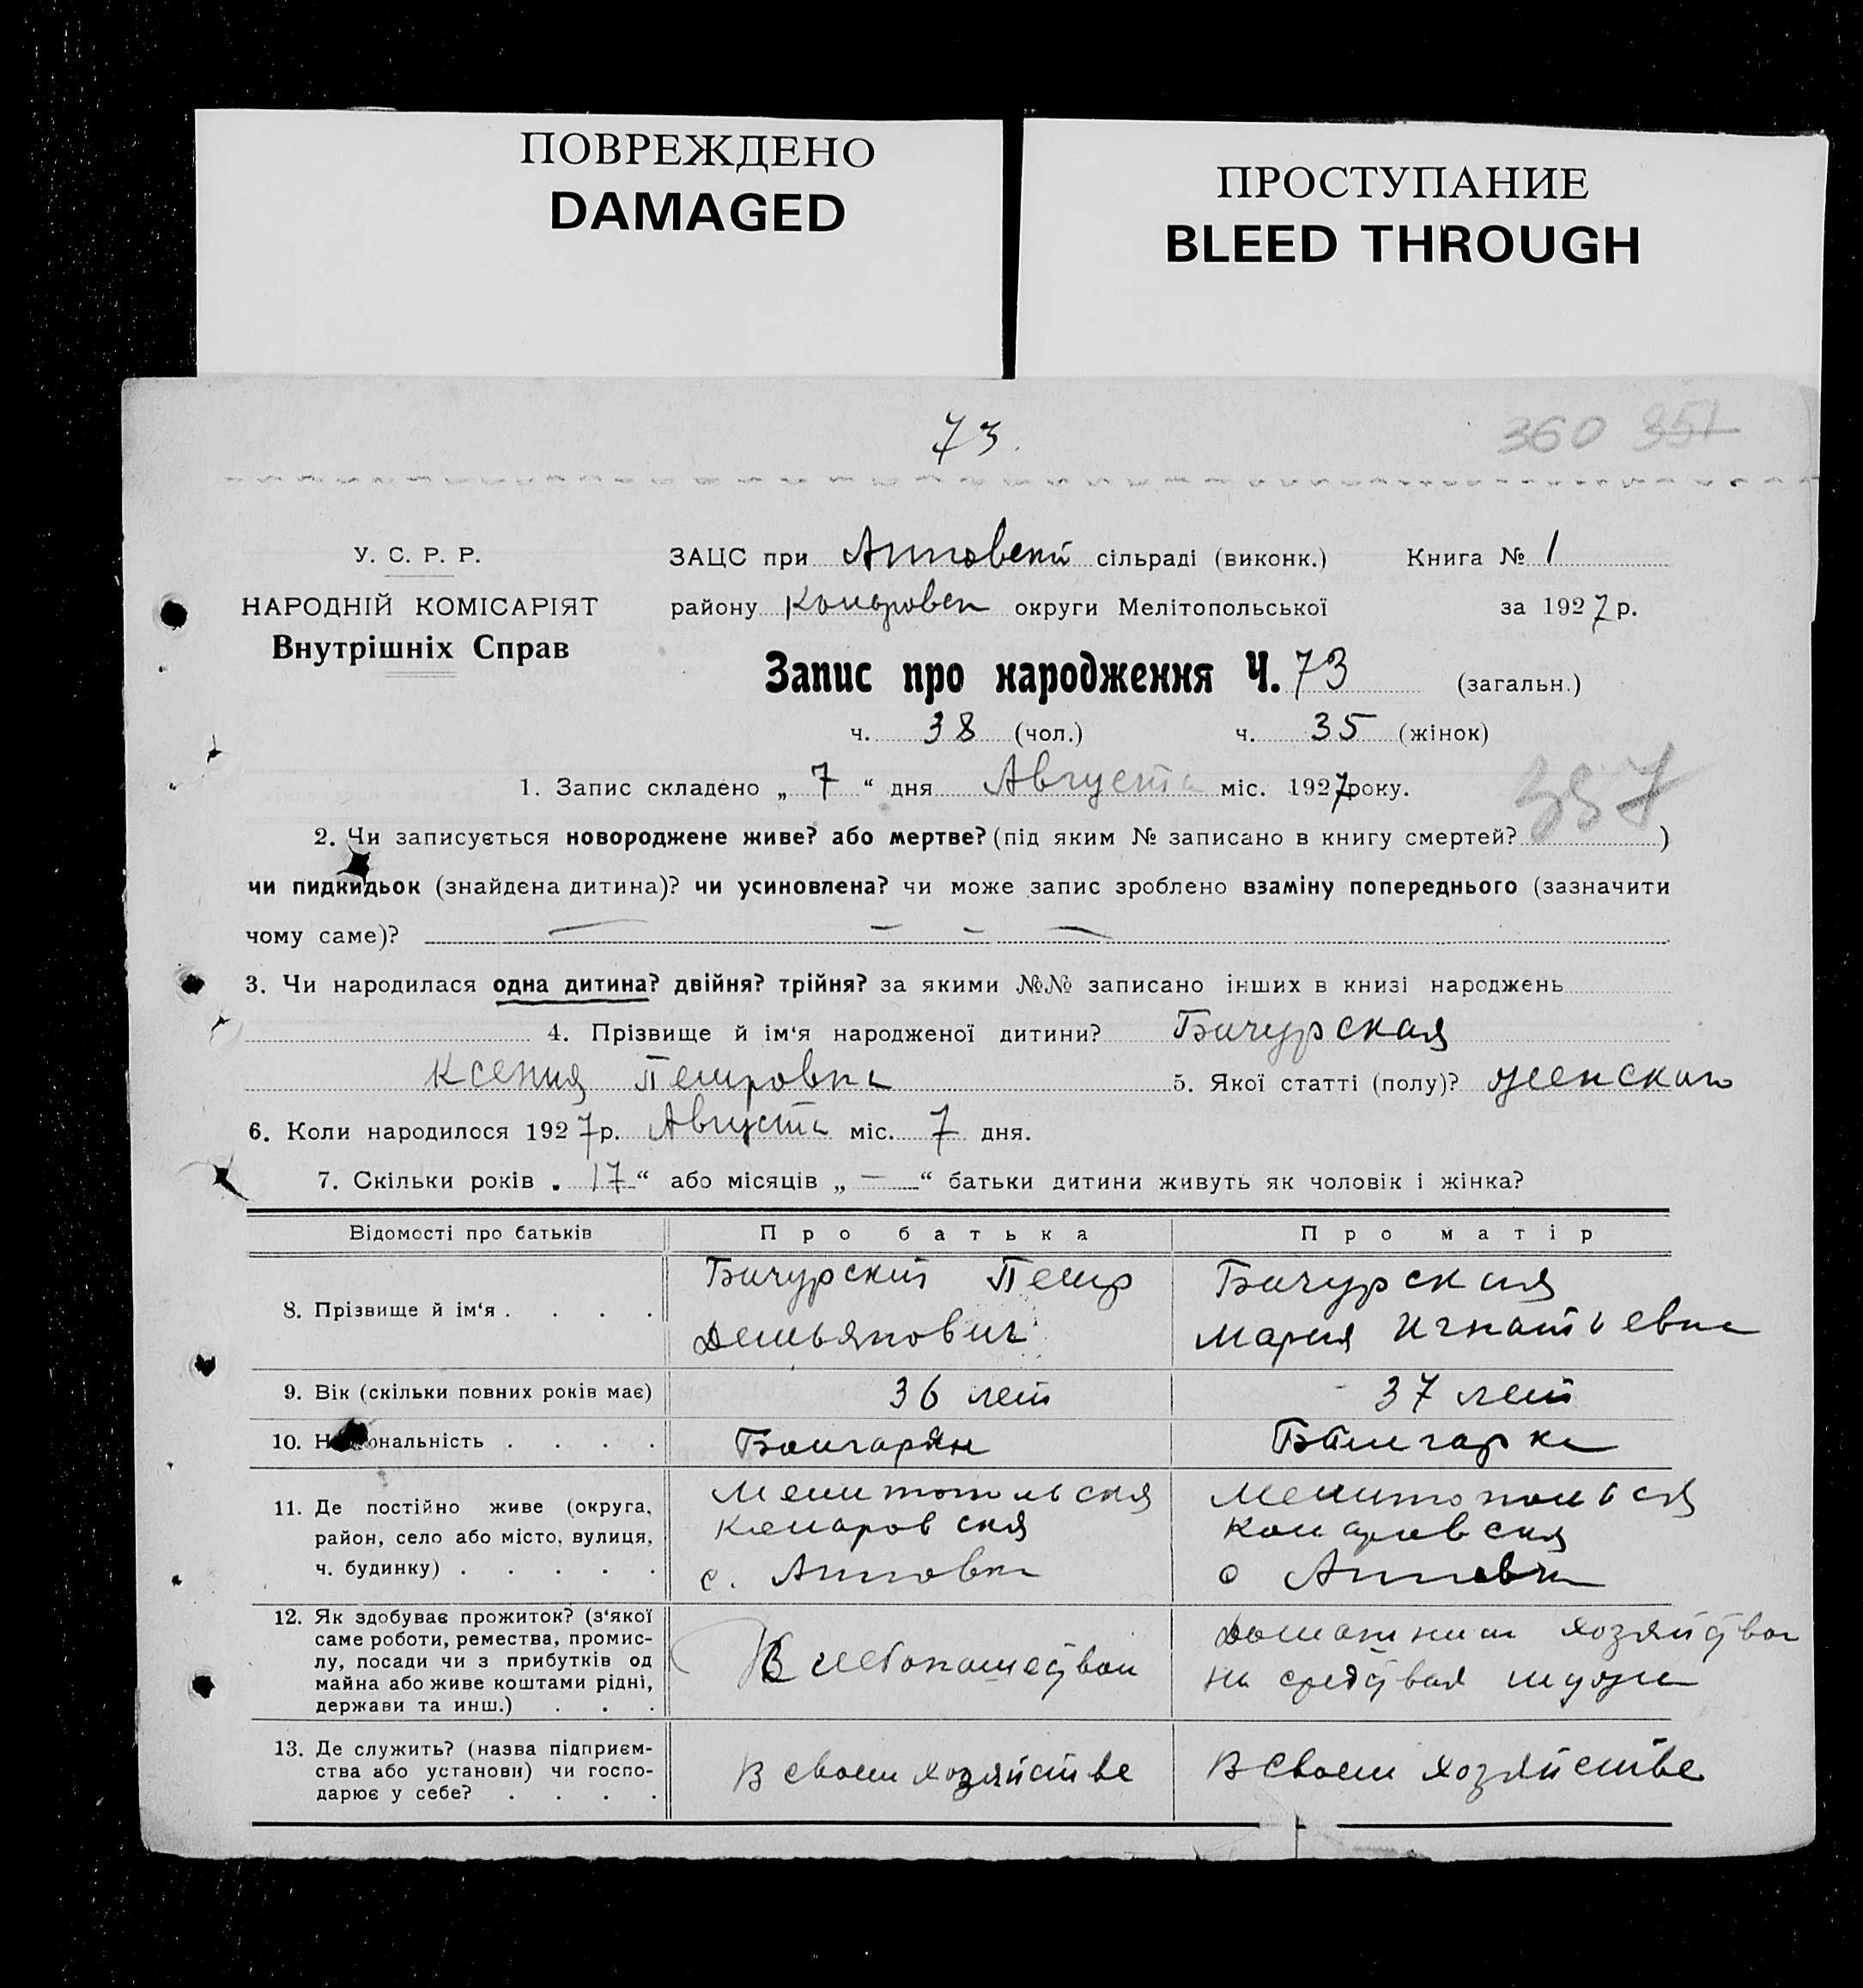 ПОВРЕЖДЕНО
DAMAGED
ПРОСТУПАНИЕ
BLEED THROUGH
73.
360 351
У. С. Р. Р.
НАРОДНІЙ КОМІСАРІЯТ
Внутрішніх Справ
ЗАЦС при сільраді (виконк.) Книга № 1
району округи Мелітопольської за 1927 р.
Запис про народження Ч. 73 (загальн.)
ч. 38 (чол.) ч. 35 (жінок)
1. Запис складено „ 7 “ дня Августа міс. 1927 року.
357
2. Чи записується новороджене живе? або мертве? (під яким № записано в книгу смертей? )
чи пидкидьок (знайдена дитина)? чи усиновлена? чи може запис зроблено взаміну попереднього (зазначити
чому саме)? — - - —
3. Чи народилася одна дитина? двійня? трійня? за якими №№ записано інших в книзі народжень
4. Прізвище й ім‘я народженої дитини? Бичурская
Ксения Петровна 5. Якої статті (полу)? женского
6. Коли народилося 1927 р. Августа міс. 7 дня.
7. Скільки років „ 17 “ або місяців „ — “ батьки дитини живуть як чоловік і жінка?
Відомості про батьків Про батька Про матір
8. Прізвище й ім‘я . . . .
Бичурский Петр
Демьянович
Бичурская
Мария Игнатьевна
9. Вік (скільки повних років має) 36 лет 37 лет
10. Національність . . . . Болгарян Болгарка
11. Де постійно живе (округа,
район, село або місто, вулиця,
ч. будинку) . . . . .
Мелитопольская
Комаровская
с. Анновка
Мелитопольская
Комаровская
с Анновка
12. Як здобуває прожиток? (з‘якої
саме роботи, ремества, промис-
лу, посади чи з прибутків од
майна або живе коштами рідні,
держави та инш.) . . .
Хлебопашеством
Домашним хозяйством
на средствах мужа
13. Де служить? (назва підприєм-
ства або установи) чи госпо-
дарює у себе? . . . .
В своем хозяйстве
В своем хозяйстве